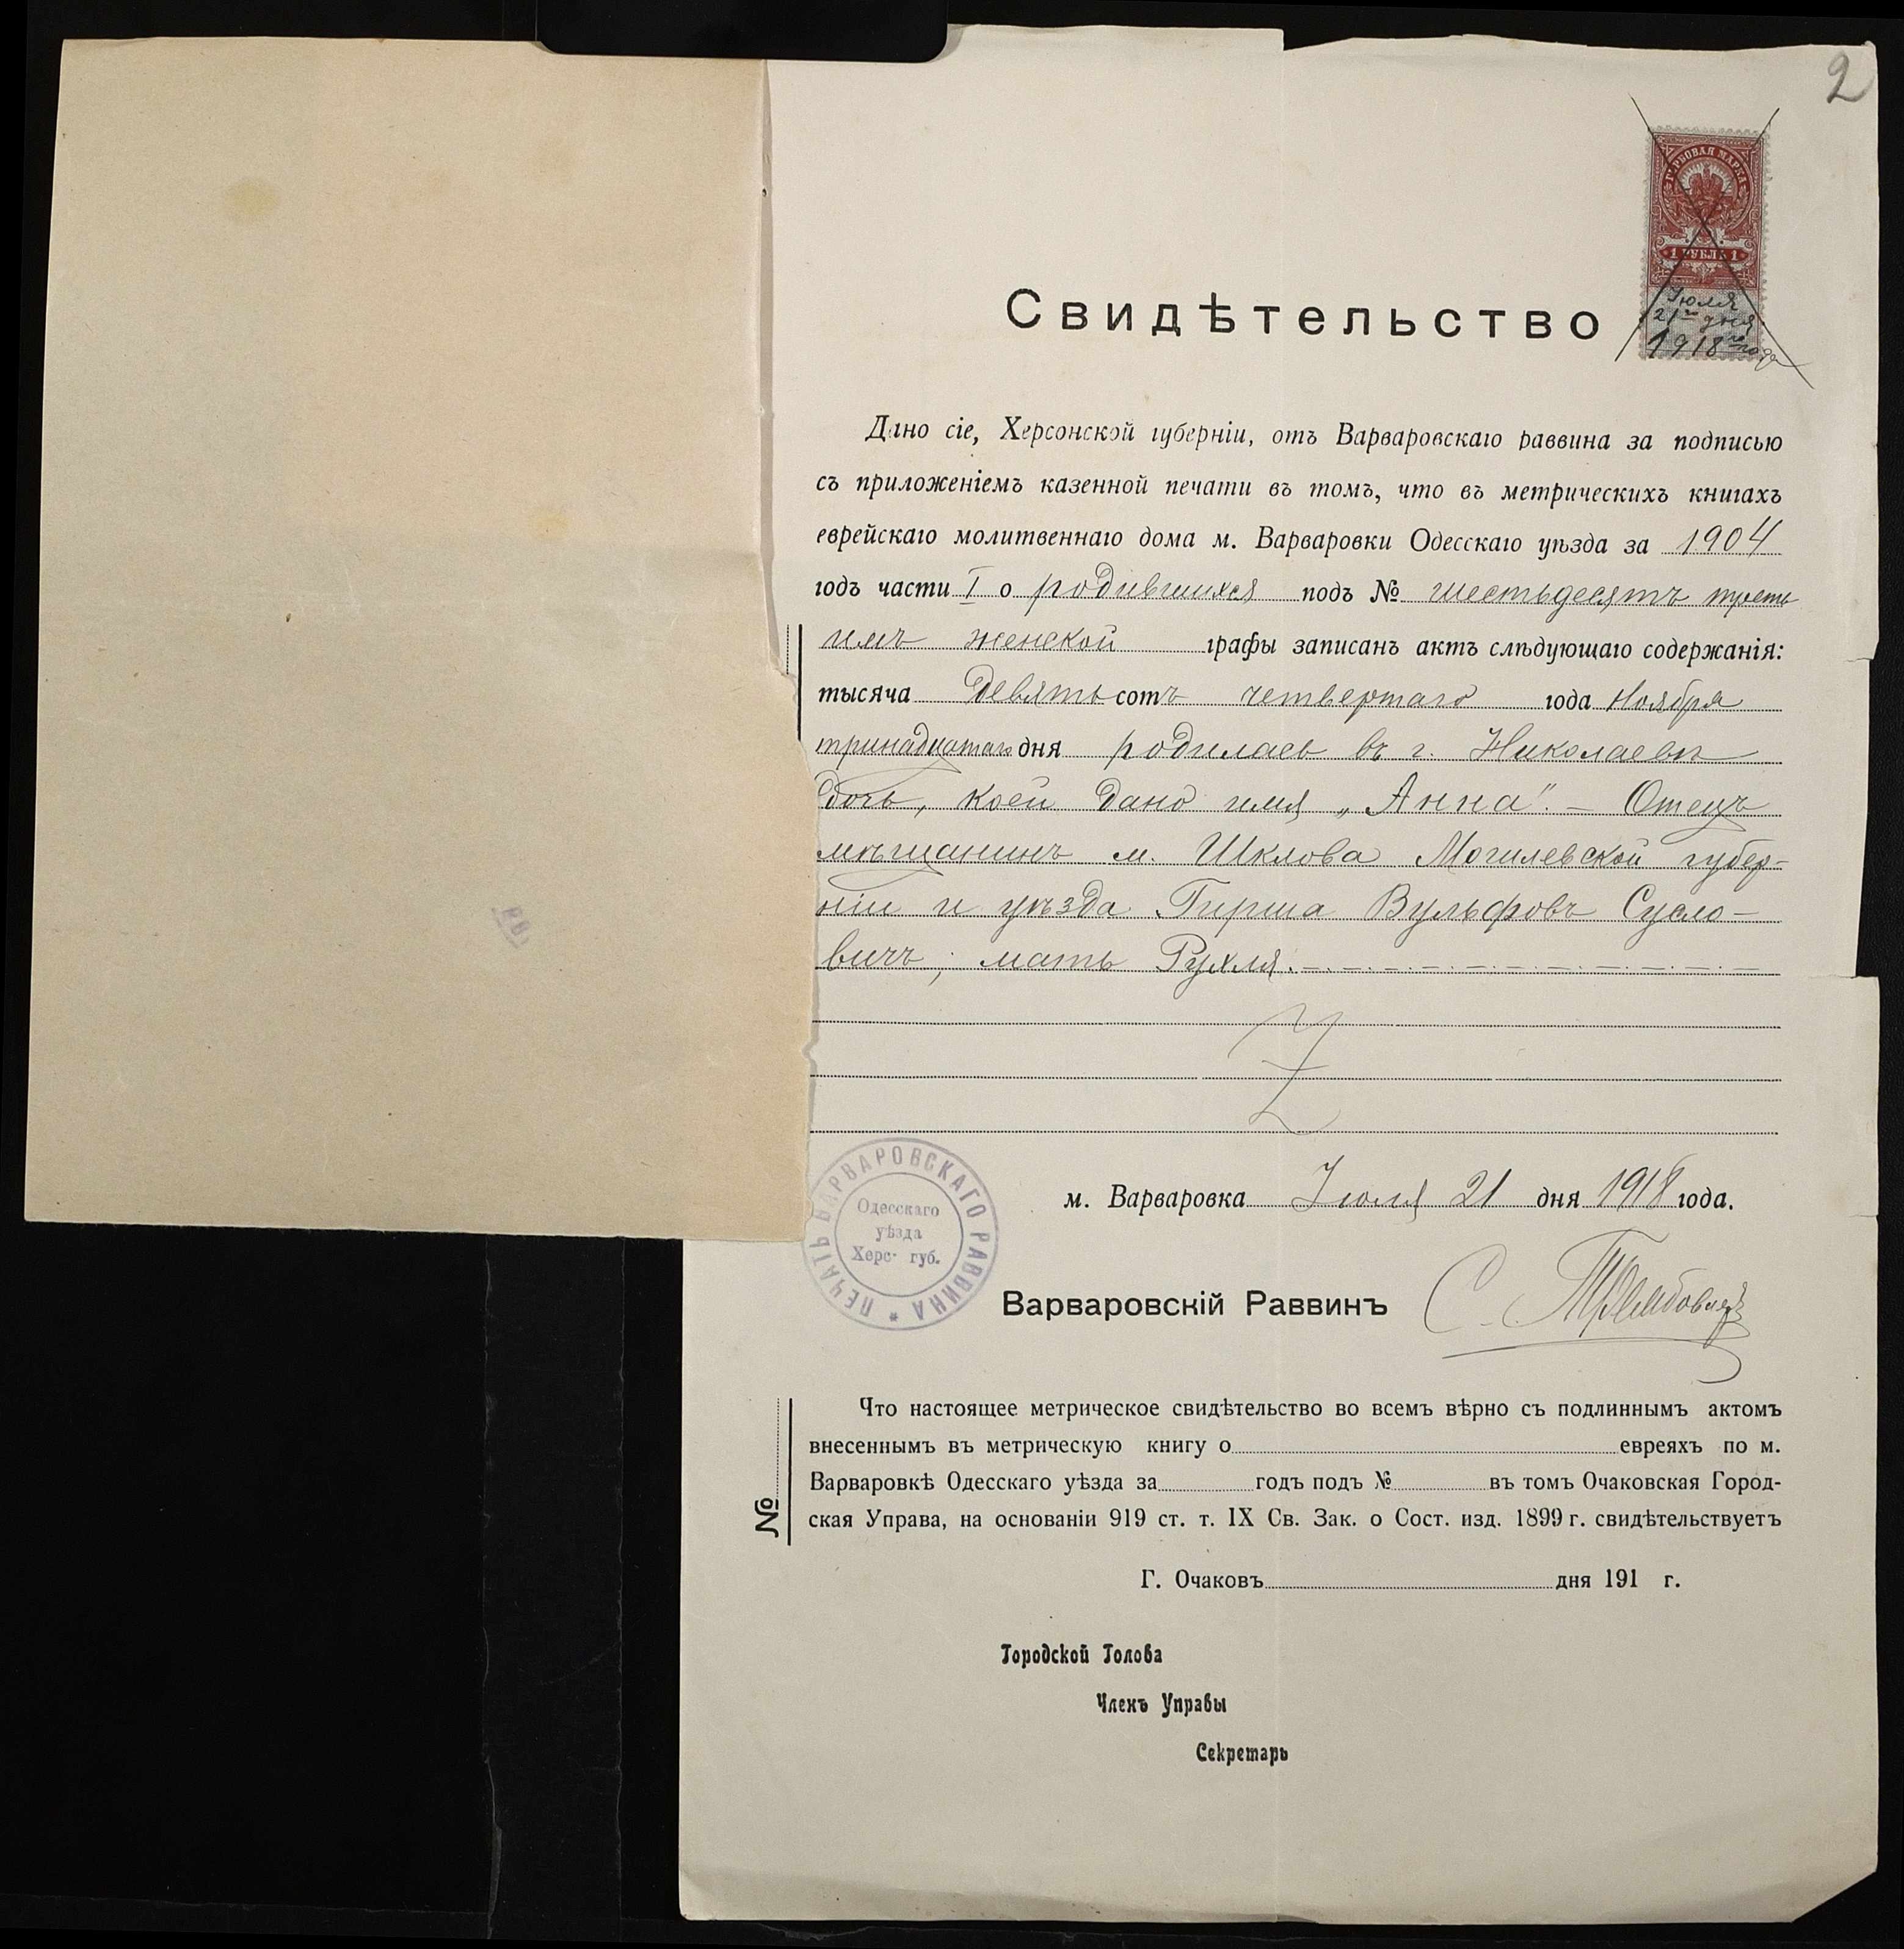 2
ГЕРБОВАЯ МАРКА
1 РУБЛЬ 1
Іюля
21го дня
1918го года
Свидѣтельство
Дано сіе, Херсонской губерніи, отъ Варваровскаго раввина за подписью
съ приложеніемъ казенной печати въ томъ, что въ метрическихъ книгахъ
еврейскаго молитвеннаго дома м. Варваровки Одесскаго уѣзда за 1904
годъ части I о родившихся подъ № шестьдесятъ треть
имъ женской графы записанъ актъ слѣдующаго содержанія:
тысяча девятьсотъ четвертаго года Ноября
тринадцатаго дня родилась въ г. Николаевѣ
дочь, коей дано имя „Анна". — Отецъ
мѣщанинъ м. Шклова Могилевской губер-
ніи и уѣзда Гирша Вульфовъ Сусло-
вичъ; мать Рухля.
м. Варваровка Іюля 21 дня 1918 года.
ПЕЧАТЬ ВАРВАРОВСКАГО РАВВИНА *
Одесскаго
уѣзда
Херс- губ.
Варваровскій Раввинъ С.
Что настоящее метрическое свидѣтельство во всемъ вѣрно съ подлиннымъ актомъ
внесеннымъ въ метрическую книгу о евреяхъ по м.
Варваровкѣ Одесскаго уѣзда за годъ подъ № въ томъ Очаковская Город-
ская Управа, на основаніи 919 ст. т. IX Св. Зак. о Сост. изд. 1899 г. свидѣтельствуетъ
№
Г. Очаковъ дня 191 г.
Городской Голова
Членъ Управы
Секретарь